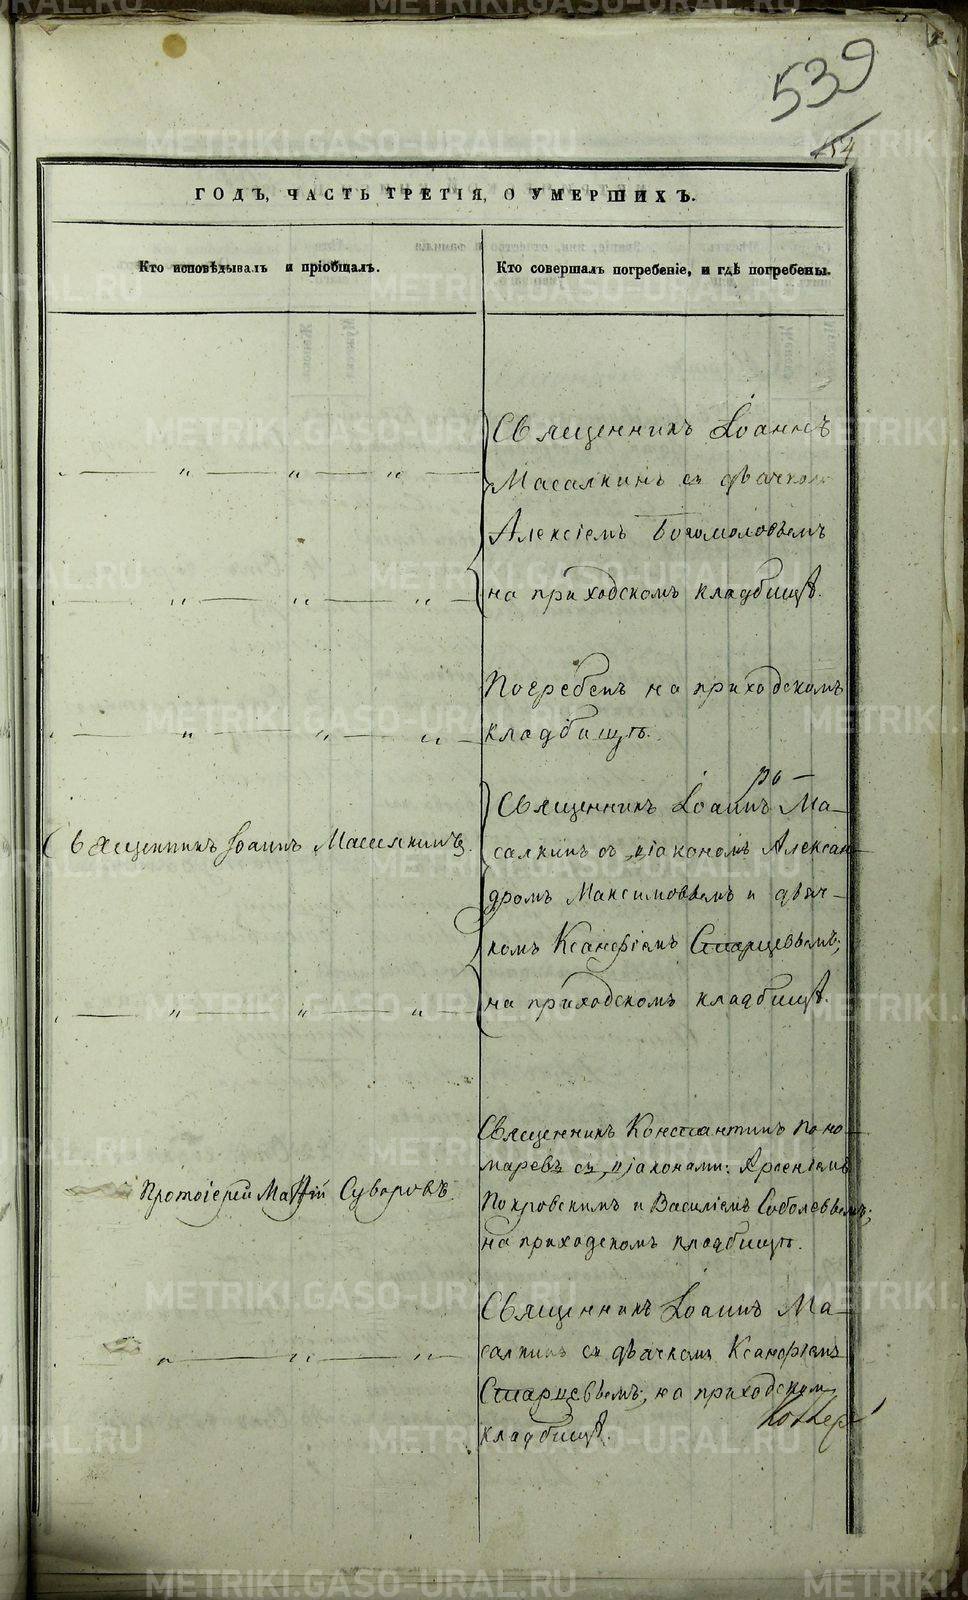 539
154
ГОДЪ, ЧАСТЬ ТРЕТІЯ, О УМЕРШИХЪ.
Кто исповѣдывалъ и пріобщалъ.
Кто совершалъ погребеніе, и гдѣ погребены.
Священникъ Іоаннъ
Масалкинъ съ дьячкомъ
Алексіемъ Богомоловымъ
на приходскомъ кладбищѣ.
Погребенъ на приходскомъ
кладбищѣ.
Священникъ Іоаннъ Масалкинъ.
Священникъ Іоаннъ Ма-
салкинъ съ діакономъ Алексан-
дромъ Максимовымъ и дьяч-
комъ Ксанфіемъ Старцевымъ;
на приходскомъ кладбищѣ.
Протоіерей Матѳій Суворовъ.
Священникъ Константинъ Поно-
маревъ съ діаконами: Арсеніемъ
Покровскимъ и Василіемъ Соболевымъ;
на приходскомъ кладбищѣ.
Священникъ Іоаннъ Ма-
салкинъ съ дьячкомъ Ксанфіемъ
Старцевымъ; на приходскомъ
кладбищѣ.
METRIKI.GASO-URAL.RU